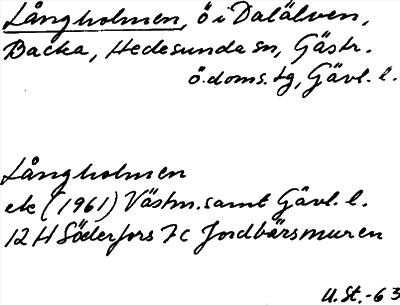 Långholmen, ö i Dalälven,
Backa, Hedesunda sn, Gästr.
ö. doms. tg, Gävl. l.
Långholmen
ek (1961) Västm. samt Gävl. l.
12 H Söderfors 7c Jordbärsmuren
U.St.-63